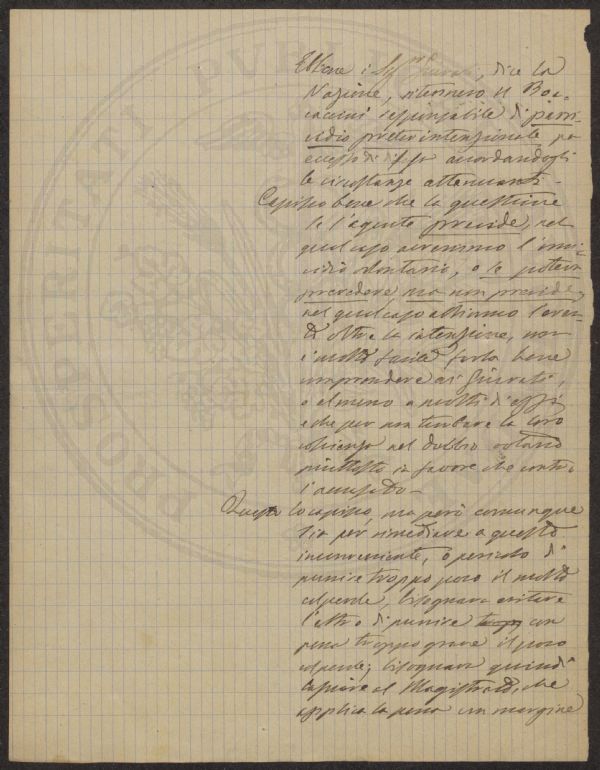 Ebbene i Sig.ri Giurati, dice la
Nazione, ritennero il Boc-
caccini responsabile di parri-
cidio preterintenzionale per
eccesso di difesa accordandogli
le circostanze attenuanti -
Capisco bene che la questione
se l'agente previde, nel
qual caso avremmo l'omi-
cidio volontario, o se poteva
prevedere ma non previde,
nel qual caso abbiamo l'even-
to oltre la intenzione, non
è molto facile farla bene
comprendere ai Giurati,
o almeno a molti di essi,
e che per non turbare la loro
coscienza nel dubbio votano
piuttosto in favore che contro
l'accusato -
Questo lo capisco, ma però comunque
sia per rimediare a questo
inconveniente, o pericolo di
punire troppo poco il molto
colpevole, bisognava evitare
l'altro di punire con
pena troppo grave il poco
colpevole; bisognava quindi
lasciare al Magistrato, che
applica la pena un margine
PROSPERITATI PUBL